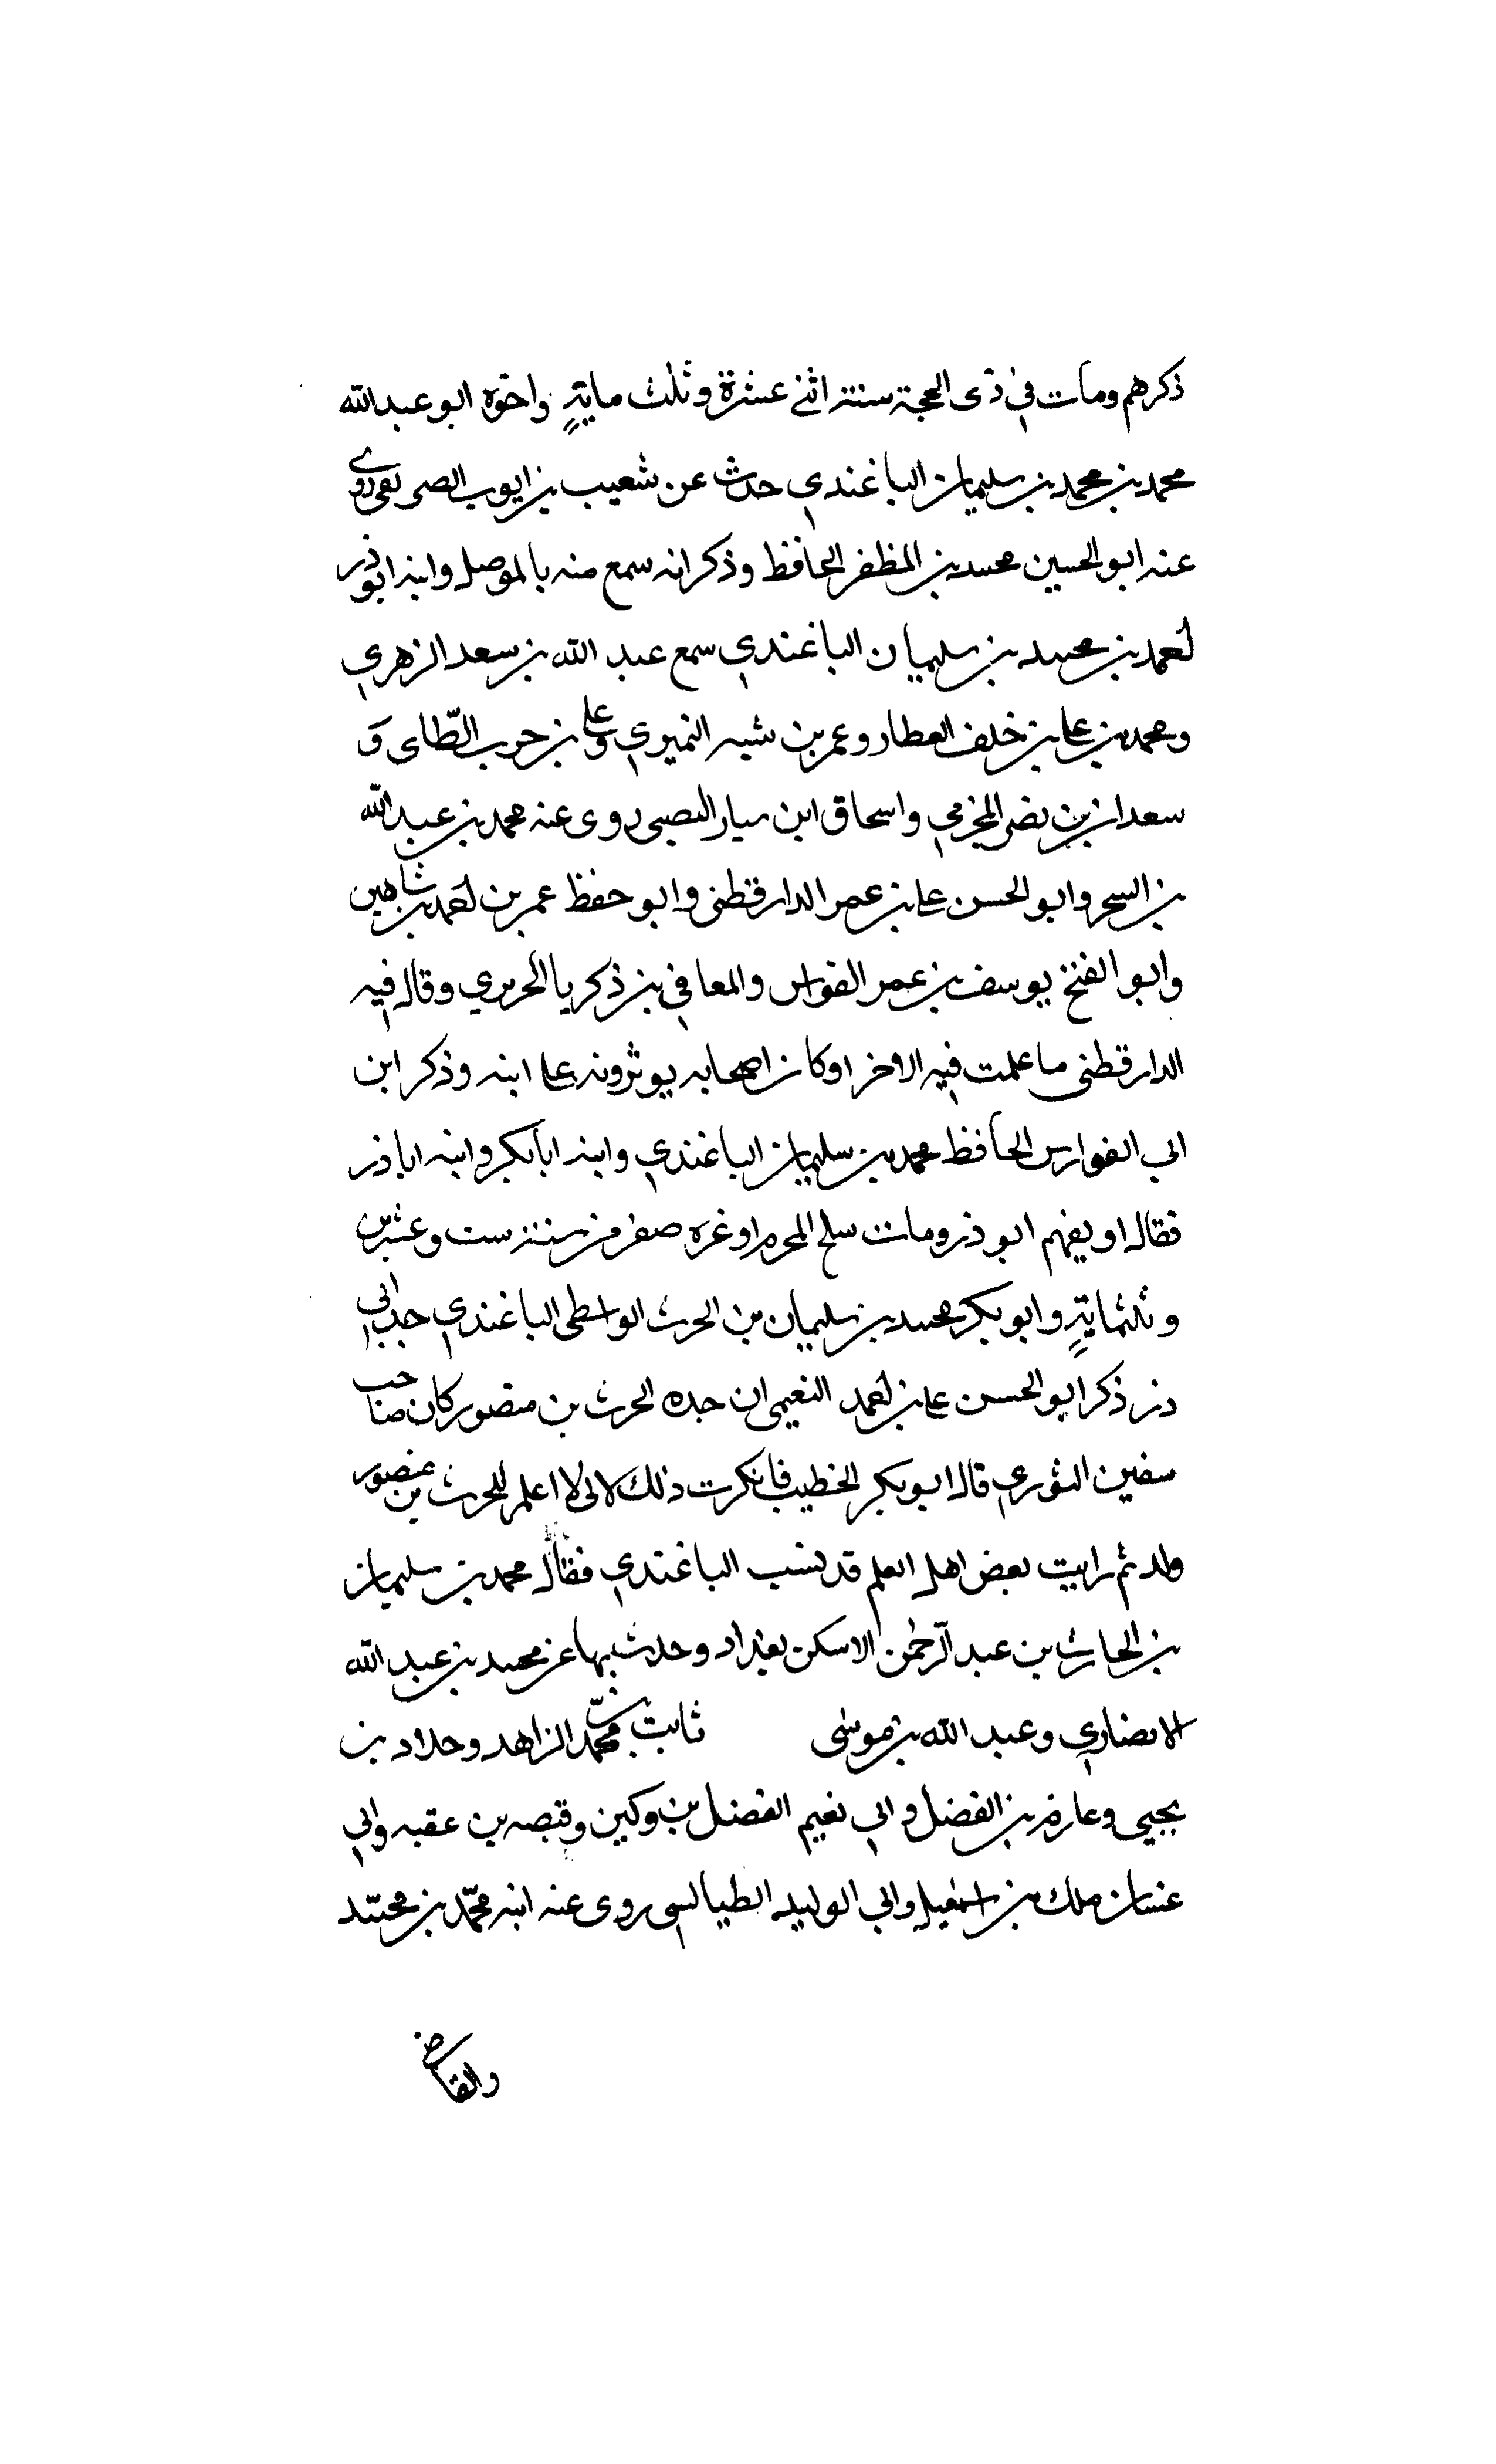 ذكرهم ومات في ذى الحجة سنة اثنى عشرة وثلث ماية واخوه ابو عبدالله
محمد بن محمد بن سليمان الباغندي حدث عن شعيب بن ايوب الصريفى روى
عنه ابو الحسين محمد بن المظفر الحافظ وذكر انه سمع منه بالموصل وابنه ابو ذر
احمد بن محمد بن سليمان الباغندي سمع عبد الله بن سعد الزهري
ومحمد بن على بن خلف العطار وعمر بن شبه النميري وعلى بن حرب الطّاى وَ
سعدان بن نصر المخرمي واسحاق ابن سيار النصيبى روى عنه محمد بن عبد الله
بن السحر وابو الحسن على بن عمر الدارقطنى وابو حفظ عمر بن احمد بن شاهين
وابو الفتح يوسف بن عمر القواس والمعافي بن زكريا الحريري وقال فيه
الدارقطنى ما علمت فيه الاخرا وكان اصحابه يوثرونه على ابنه وذكر ابن
ابي الفوارس الحافظ محمد بن سليمان الباغندي وابنه ابابكر وابنه اباذر
فقال اويفهم ابو ذر ومات سلخ المحرم او غره صفر من سنة ست وعشرين
وثلثماية وابو بكر محمد بن سليمان بن الحرث الواسطى الباغندي جد ابي
ذر ذكر ابو الحسن على بن احمد النعيمى ان جده الحرث بن منصور كان صاحب
سفين الثوري قال ابو بكر الخطيب فانكرت ذلك لانى لا اعلم للحرث بن منصور
ولد ثم رايت بعض اهل العلم قد نسب الباغندي فقال محمد بن سليمان
بن الحارث بن عبد الرحمن الاسكن بغداد وحدث بها عن محمد بن عبد الله
الانصاري وعبد الله بن موسى ثابت بن محمّد الزاهد وخلاد بن
يحيى وعارم بن الفضل وابي نعيم الفضل بن وكين وقبصه بن عقبه وابي
غسان ملك بن اسمعيل وابي الوليد الطيالسى روى عنه ابنه محمّد بن محمّد
والقاضى